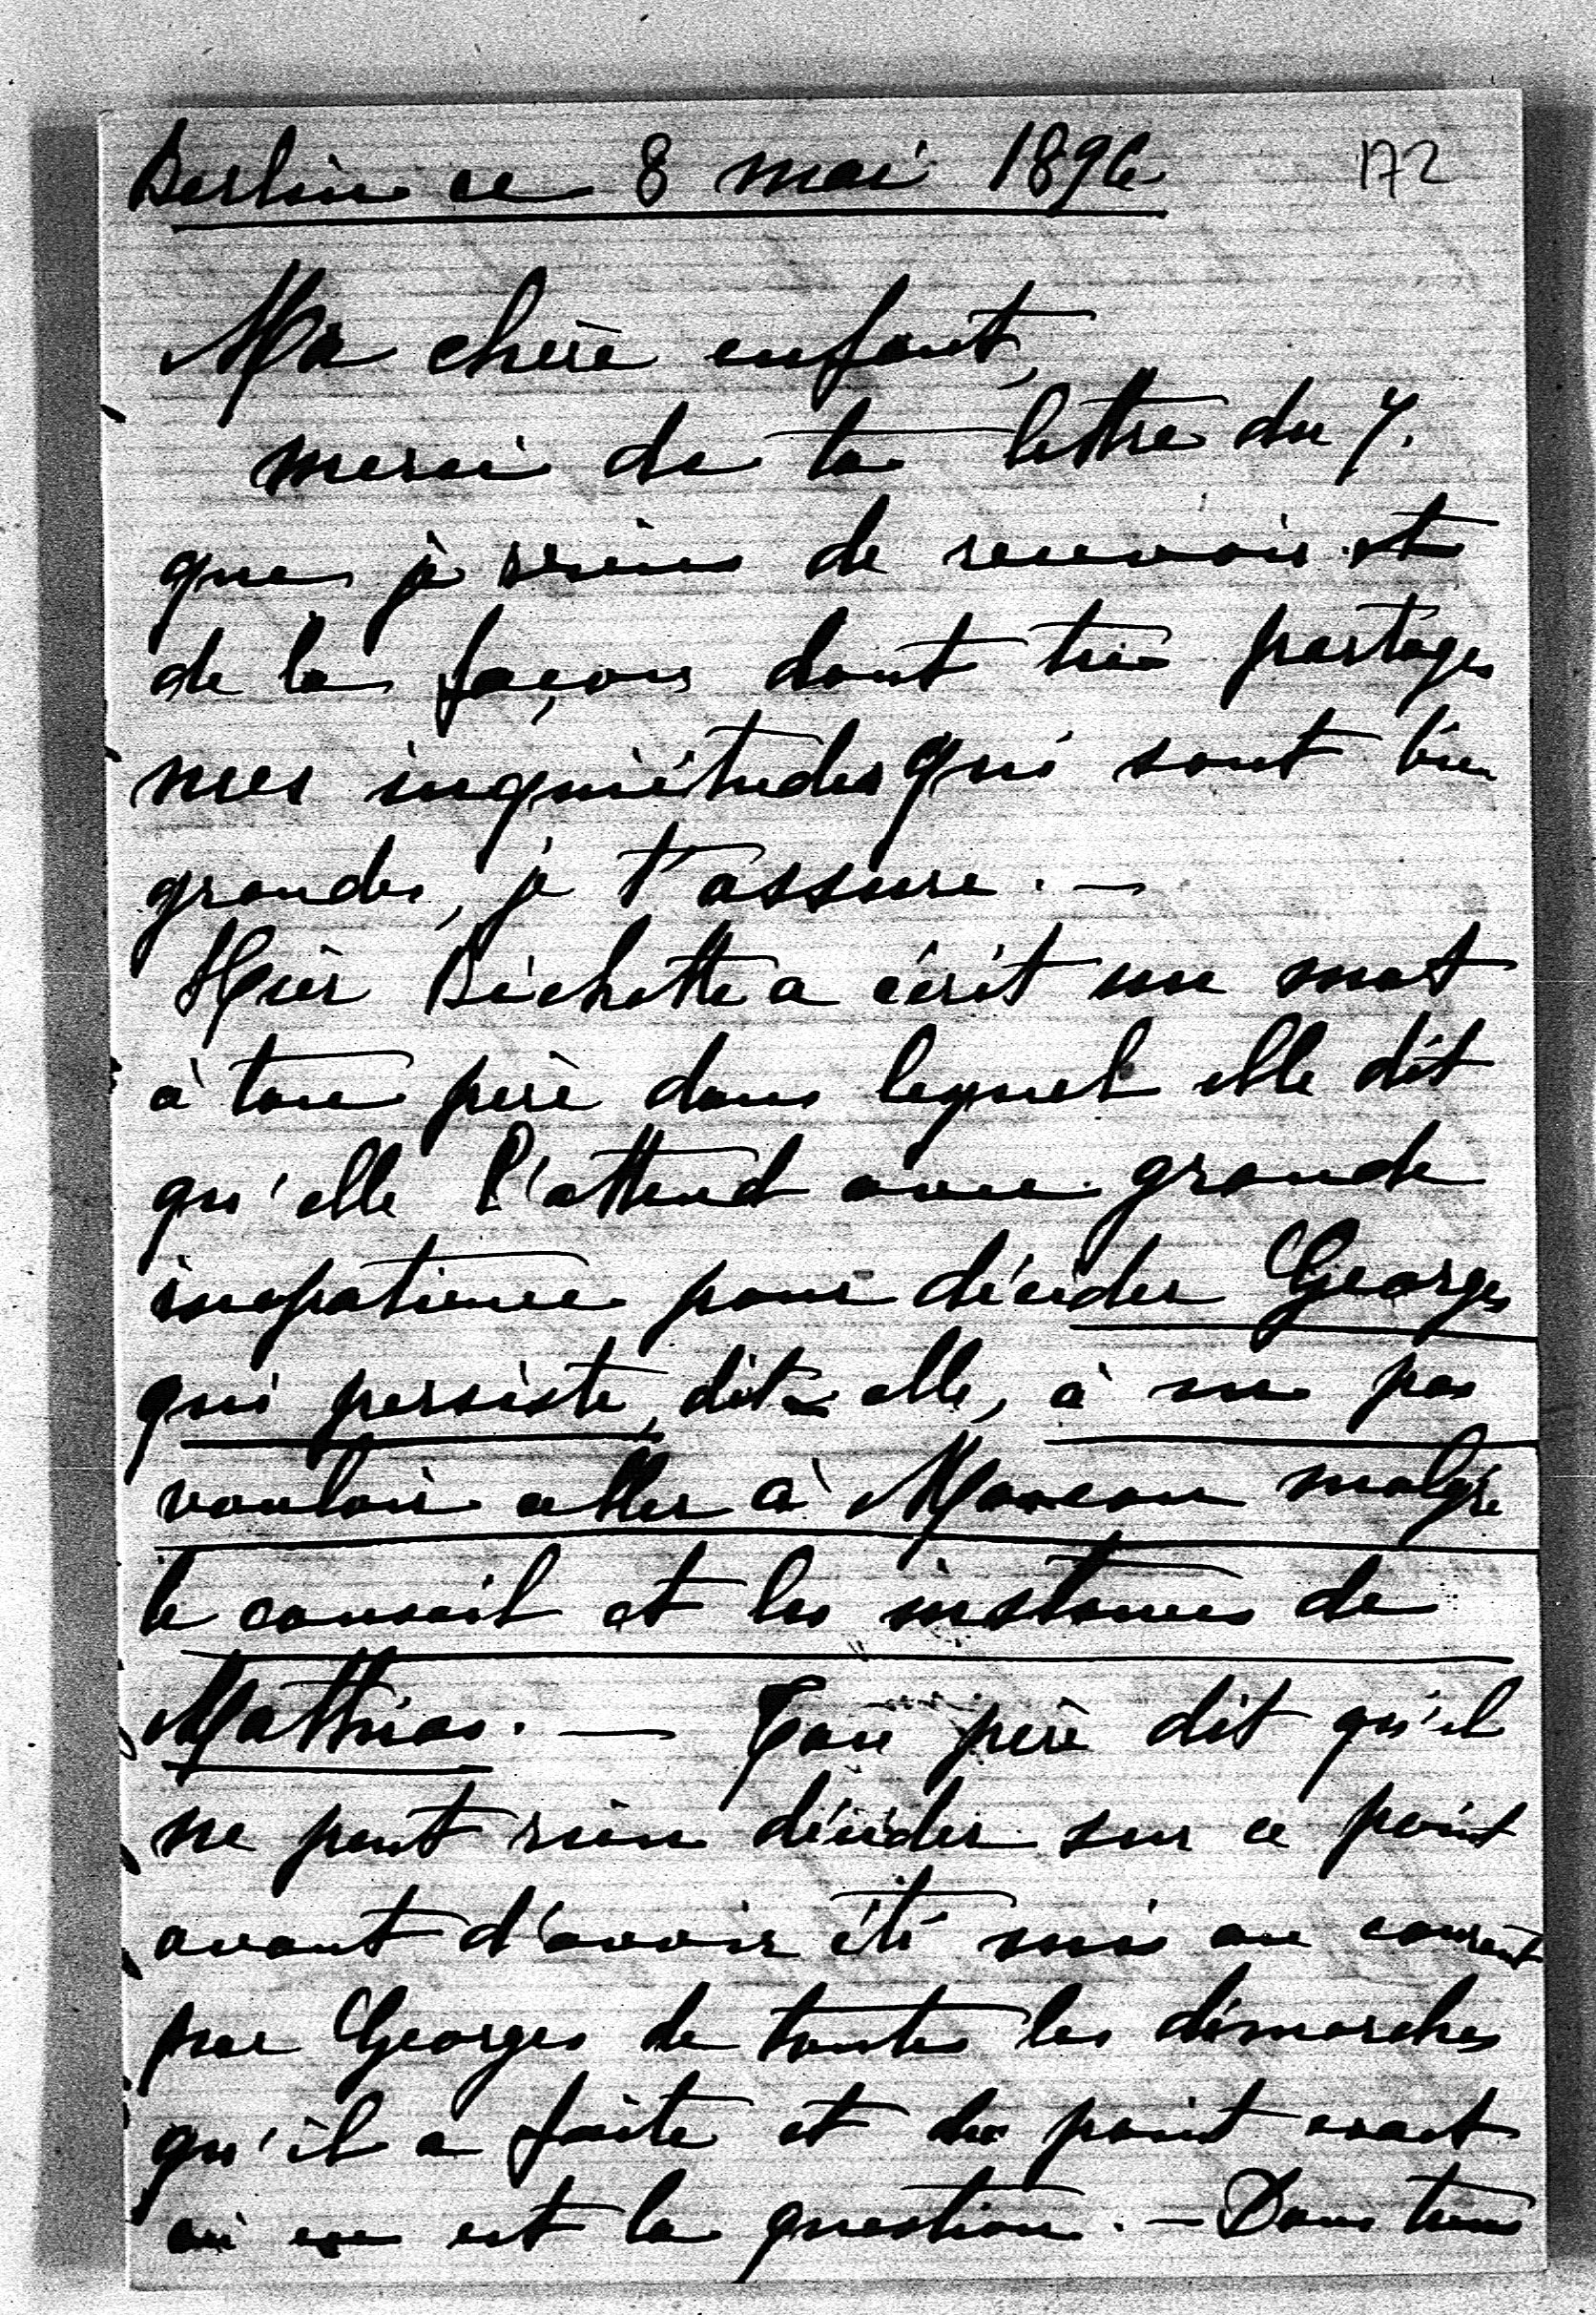 Berlin ce 8 mai 1896
172
Ma chère enfant,
merci de ta lettre du 7.
que je viens de recevoir et
de la façon dont tu partages
mes inquiétudes qui sont bien
grandes, je t'assure. —
Hier Bichette a écrit un mot
à ton père dans lequel elle dit
qu'elle l'attend avec grande
impatience pour décider Georges
qui persiste, dit-elle, à ne pas
vouloir aller à Moscou malgré
le conseil et les instances de
Mathias. — Ton père dit qu'il
ne peut rien décider sur ce point
avant d'avoir été mis au courant
par Georges de toutes les démarches
qu'il a faites et du point exact
où en est la question. — Dans tous